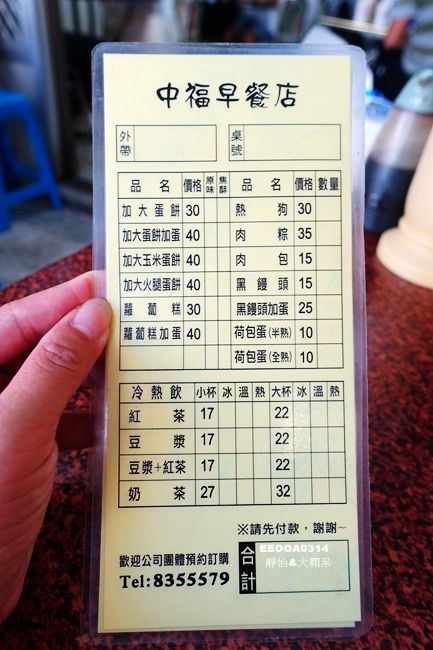 中福早餐店
外帶 桌號
品名 價格 原味 焦酥 品名 價格 數量
加大蛋餅 30 熱狗 30
加大蛋餅加蛋 40 肉粽 35
加大玉米蛋餅 40 肉包 15
加大火腿蛋餅 40 黑饅頭 15
蘿蔔糕 30 黑饅頭加蛋 25
蘿蔔糕加蛋 40 荷包蛋(半熟) 10
荷包蛋(全熟) 10
冷熱飲 小杯 冰 溫 熱 大杯 冰 溫 熱
紅茶 17 22
豆漿 17 22
豆漿+紅茶 17 22
奶茶 27 32
※請先付款，謝謝~
歡迎公司團體預約訂購
Tel:8355579
合計
EEOOA0314
靜怡&大顆呆